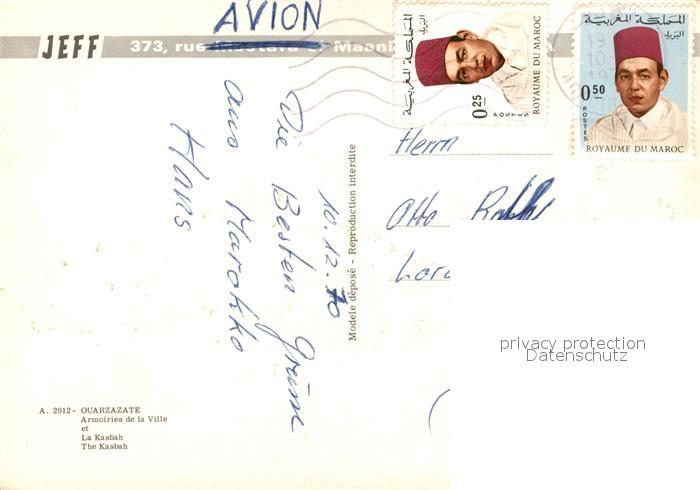 AVION
JEFF 373, rue Mostafa Maani
المملكة المغربية
البريد
0.25
POSTES
ROYAUME DU MAROC
المملكة المغربية
البريد
0.50
POSTES
ROYAUME DU MAROC
10.12.70
Die Besten Grüsse
aus Marokko
Hans
Modele déposé - Reproduction interdite
Herrn
Otto
privacy protection
Datenschutz
A. 2012 - OUARZAZATE
Armoiries de la Ville
et
La Kasbah
The Kasbah